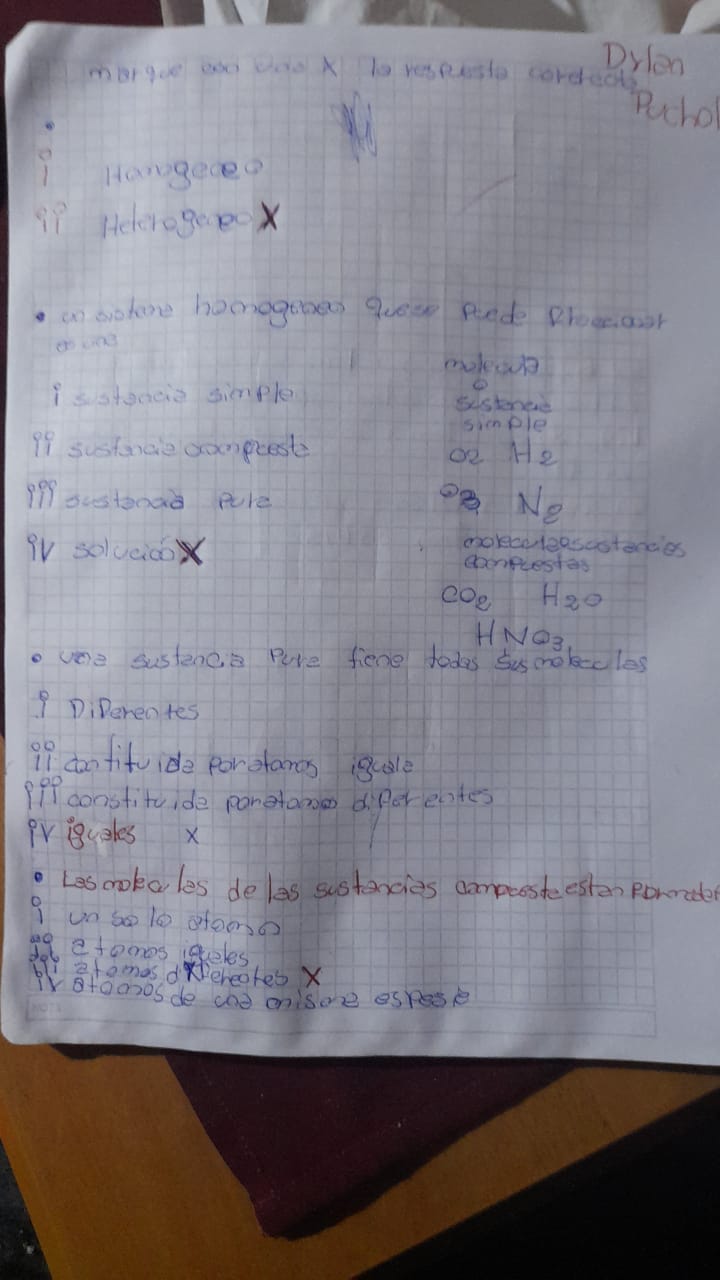 Dylan
marque con una X la respuesta correcta
Puchol
•
i Homogeneo
ii Heterogeneo X
• un sistema homogeneo que se puede fraccionar
es una
i sustancia simple
ii sustancia compuesta
iii sustancia Pura
iv solución X
molecula
o
sustancia
simple
O2 H2
O3 N2
moleculas sustancias
compuestas
CO2 H2O
HNO3
• una sustancia Pura tiene todas sus moleculas
i Diferentes
ii contituida por atomos iguale
iii constituida por atomos diferentes
iv iguales x
• Las moleculas de las sustancias compuesta estan Formadas
i un solo atomo
ii atomos iguales
iii atomos diferentes X
iv atomos de una misma especie